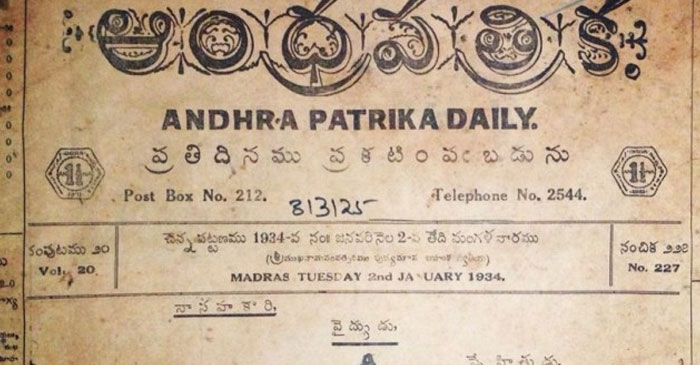 ఆంధ్రపత్రిక
ANDHRA PATRIKA DAILY.
ప్రతిదినము ప్రకటింపఁబడును
1½ 1½
Post Box No. 212. Telephone No. 2544.
8/3/25
సంపుటము ౨౦
Vol. 20.
చెన్నపట్టణము 1934-వ సం॥ జనవరినెల 2-వ తేది మంగళవారము
(శ్రీముఖనామసంవత్సరము
MADRAS TUESDAY 2nd JANUARY 1934.
సంచిక ౨౨౭
No. 227
నాసహకారి.
వైద్యుడు.
స్నేహితుడు.